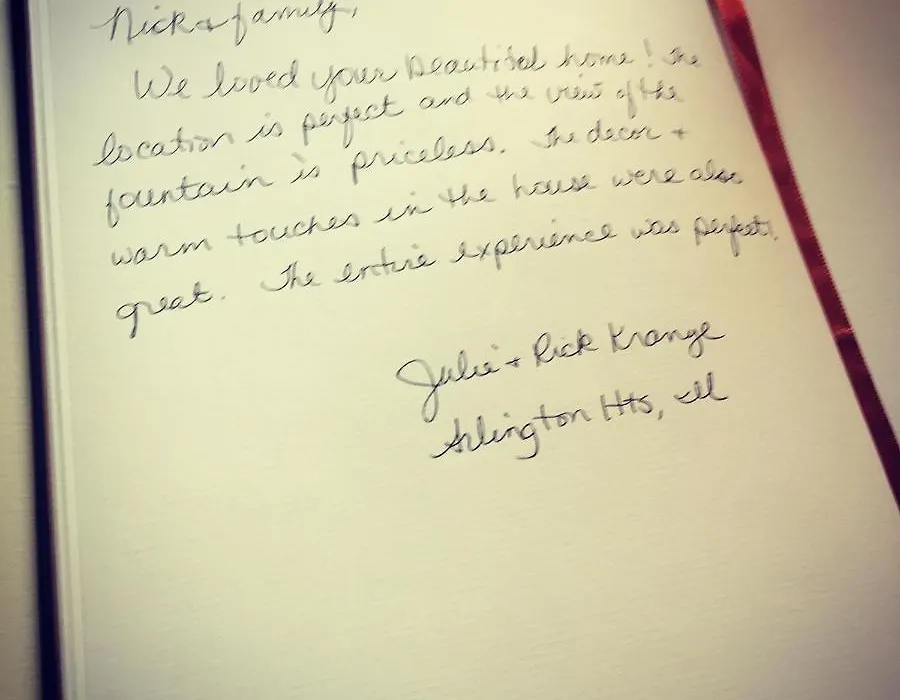 Nick & family,
We loved your beautiful home! The
location is perfect and the view of the
fountain is priceless. The decor +
warm touches in the house were also
great. The entire experience was perfect!
Julie + Rick Krange
Arlington Hts, Ill